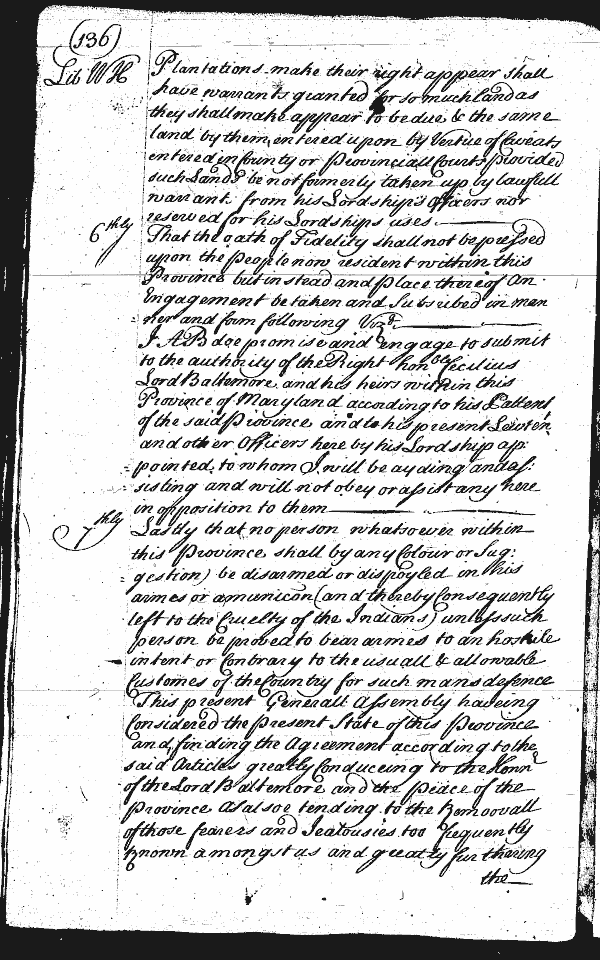 (136)
Lib WH
Plantations make their right appear shall
have warrants granted for so much land as
they shall make appear to be due & the same
land by them entered upon by Vertue of Caveats
entered in County or Provinciall Courts provided
such Lands be not formerly taken up by lawfull
warrant from his Lordships Officers nor
reserved for his Lordships uses
6thly
That the oath of Fidelity shall not be pressed
upon the People now resident within this
Province but instead and place thereof an
Engagement be taken and Subscribed in man
ner and form following Vizt
I A B doe promise and engage to submit
to the authority of the Right honble Cecilius
Lord Baltemore and his heirs within this
Province of Maryland according to his Pattent
of the said Province and to his present Lewten
and other Officers here by his Lordship ap:
pointed, to whom I will be ayding and as:
sisting and will not obey or assist any here
in opposition to them
7thly
Lastly that no person whatsoever within
this Province shall by any Colour or Sug:
gestion) be disarmed or dispoyled in his
armes or amunicon (and thereby Consequently
left to the Cruelty of the Indians) unless such
person be proved to bear armes to an hostile
intent or Contrary to the usuall & allowable
Customes of the Country for such mans defence
This present Generall Assembly haveing
Considered the present State of this Province
and finding the Agreement according to the
said Articles greatly Conduceing to the Honr
of the Lord Baltemore and the peace of the
Province As alsoe tending to the Remoovall
of those fearers and Jealousies too frequently
known amongst us and greatly furthering
the